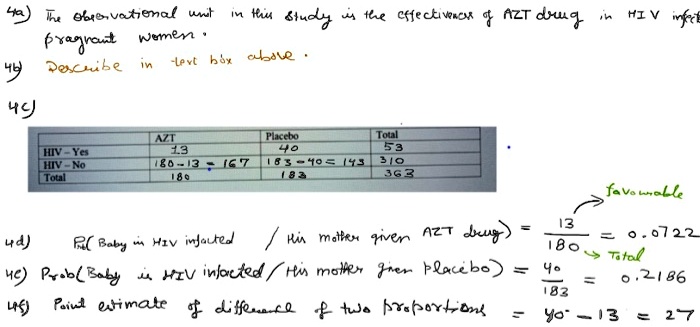 4a) The observational unit in this study is the effectiveness of AZT drug in HIV infect
pragnant women.
4b) Describe in text box above.
4c)
AZT Placebo Total
HIV – Yes 13 40 53
HIV – No 180-13 = 167 183-40 = 143 310
Total 180 183 363
favourable
4d) Prob( Baby is HIV infected / His mother given AZT drug) = 13/180 = 0.0722
Total
4e) Prob( Baby is HIV infected / His mother given Placebo) = 40/183 = 0.2186
4f) Point estimate of difference of two proportions = 40 - 13 = 27